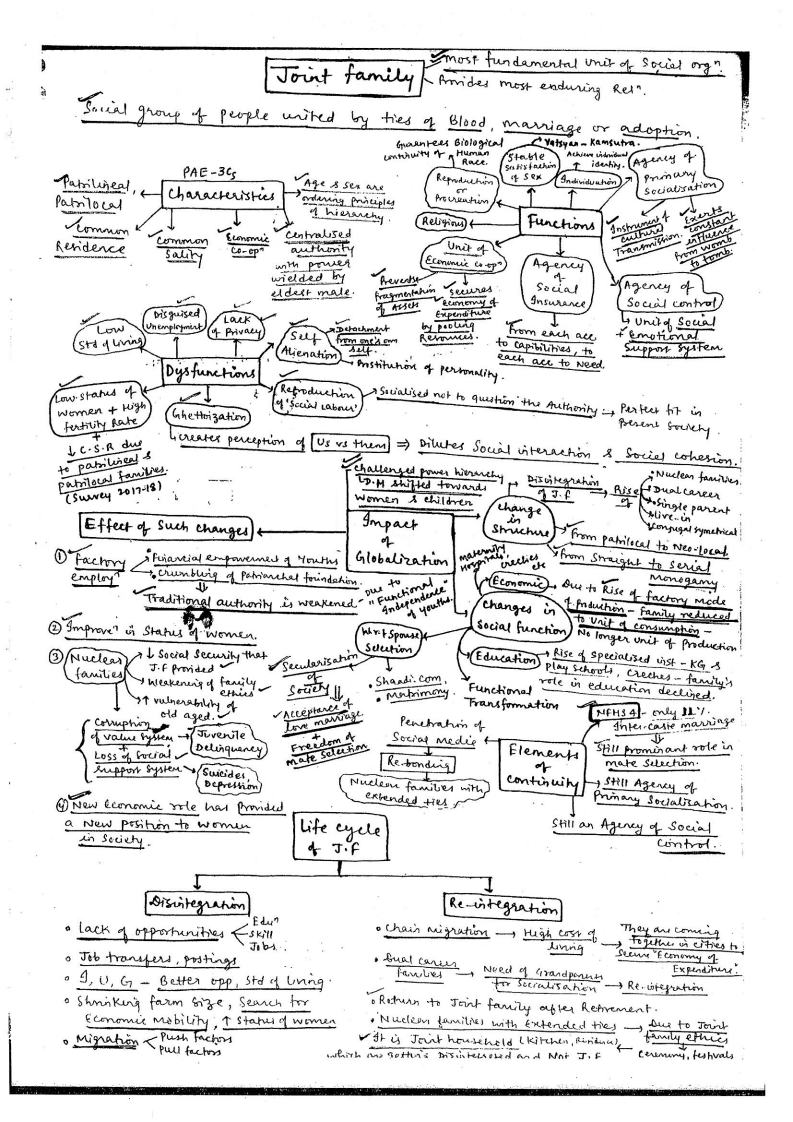 Joint family
Most fundamental Unit of Social orgⁿ.
Provides most enduring Relⁿ.
Social group of people united by ties of Blood, marriage or adoption.
PAE-3Cs
Characteristics
Patrilineal,
Patrilocal
Common
Residence
Common
Sality
Economic
Co-opⁿ
Centralised
authority
with power
wielded by
eldest male.
Age & Sex are
ordering principles
of hierarchy.
Functions
Guarentees Biological
continuity of Human
Race.
Reproduction
or
Procreation
Religious
Stable
Satisfaction
of Sex
Vatsyan - Kamsutra.
Achieve individual
identity.
Individuation
Agency of
Primary
Socialisation
Instrument of
Culture
Transmission.
Exerts
constant
influence
from womb
to tomb.
Unit of
Economic Co-opⁿ
Prevents
fragmentation
of Assets
Secures
Economy of
Expenditure
by pooling
Resources.
Agency
of
Social
Insurance
From each acc
to Capibilities, to
each acc to Need.
Agency of
Social control
Unit of Social
+ Emotional
Support System
Dysfunctions
Low
Std of Living
Disguised
Unemployment
Lack
of Privacy
Self
Alienation
Detachment
from one's own
self.
Institution of personality.
Low Status of
Women + High
fertility Rate
+
↓ C.S.R due
to patrilineal &
patrilocal families.
(Survey 2017-18)
Ghettoization
Creates perception of Us vs them ⇒ Dilutes Social interaction & Social cohesion.
Reproduction
of 'Social Labour'
Socialised not to question the Authority → Perfect fit in
Present Society.
Impact
of
Globalization
Challenged power hierarchy
D.M shifted towards
Women & children
Change
in
Structure
Disintegration
of J.F
Rise
of
Nuclear families.
Dual career
Single parent
Live-in
Conjugal symetrical
From patrilocal to Neo-local
From Straight to Serial
monogamy
Changes in
Social function
maternity
Hospitals,
creches
etc
Economic
Due to Rise of factory mode
of production - family reduced
to Unit of consumption -
No longer Unit of Production
Education
Rise of Specialised inst - KG &
play Schools, creches - family's
role in education declined.
Functional
Transformation
W.r.t Spouse
Selection
Shaadi.com,
Matrimony.
Secularisation
of
Society
Acceptance of
love marriage
+
Freedom of
mate Selection
Effect of Such changes
① factory
employᵗ
Financial empowerment of Youths
Crumbling of Patriarchal foundation.
Traditional authority is weakened
due to
"Functional
Independence"
of youths.
② Improveᵗ in Status of women.
③ Nuclear
families
↓ Social Security that
J.F provided
Weakening of family
ethics
↑ vulnerability of
old aged.
Corruption
of value system
+
Loss of Social
Support system
Juvenile
Delinquency
Suicides,
Depression
④ New Economic role has provided
a New position to women
in Society.
Elements
of
continuity
NFHS 4 - only 11%
Inter-caste marriage
Still prominant role in
mate Selection.
Still Agency of
Primary Socialisation.
Still an Agency of Social
Control.
Penetration of
Social Media
Re-bonding
Nuclear families with
extended ties
Life cycle
of J.F
Disintegration
Lack of opportunities
Eduⁿ
Skill
Jobs.
Job transfers, postings
I, U, G - Better opp, Std of living.
Shrinking farm Size, Search for
Economic Mobility, ↑ Status of women
Migration
Push factors
Pull factors
Re-integration
Chain migration → High cost of
living
They are coming
Together in cities to
Secure "Economy of
Expenditure".
Dual career
families → Need of Grandparents
for Socialisation → Re-integration
Return to Joint family after Retirement.
Nuclear families with Extended ties → Due to Joint
family ethics
Ceremony, festivals
It is Joint household (Kitchen, Residence)
which are getting Disintegrated and Not J.F